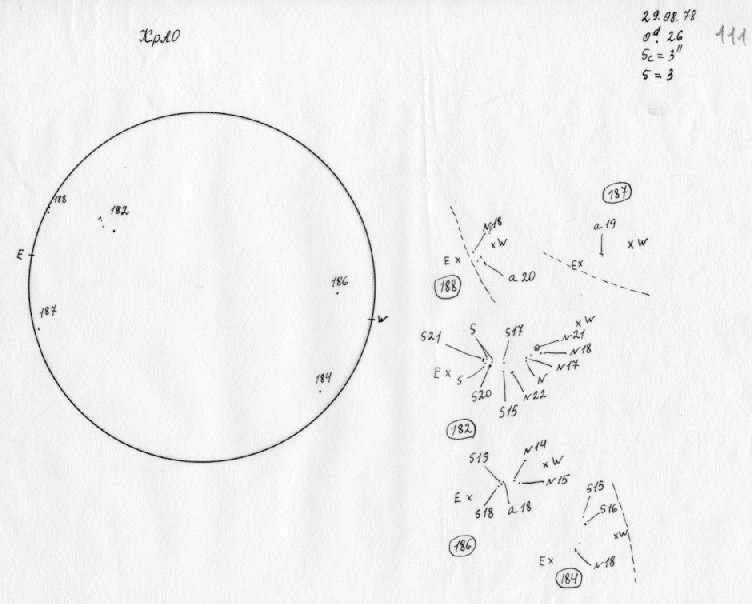 КрАО
29.08.78
26
111
Sc = 3"
S = 3
188
182
E
187
186
W
184
187
a 19
x W
Ex
N18
x W
E x
a 20
188
S21
S
S17
x W
N21
N18
N17
E x
S
N
S20
N22
S15
182
S19
N14
x W
N15
E x
S18
a 18
186
S15
S16
xW
N18
Ex
184